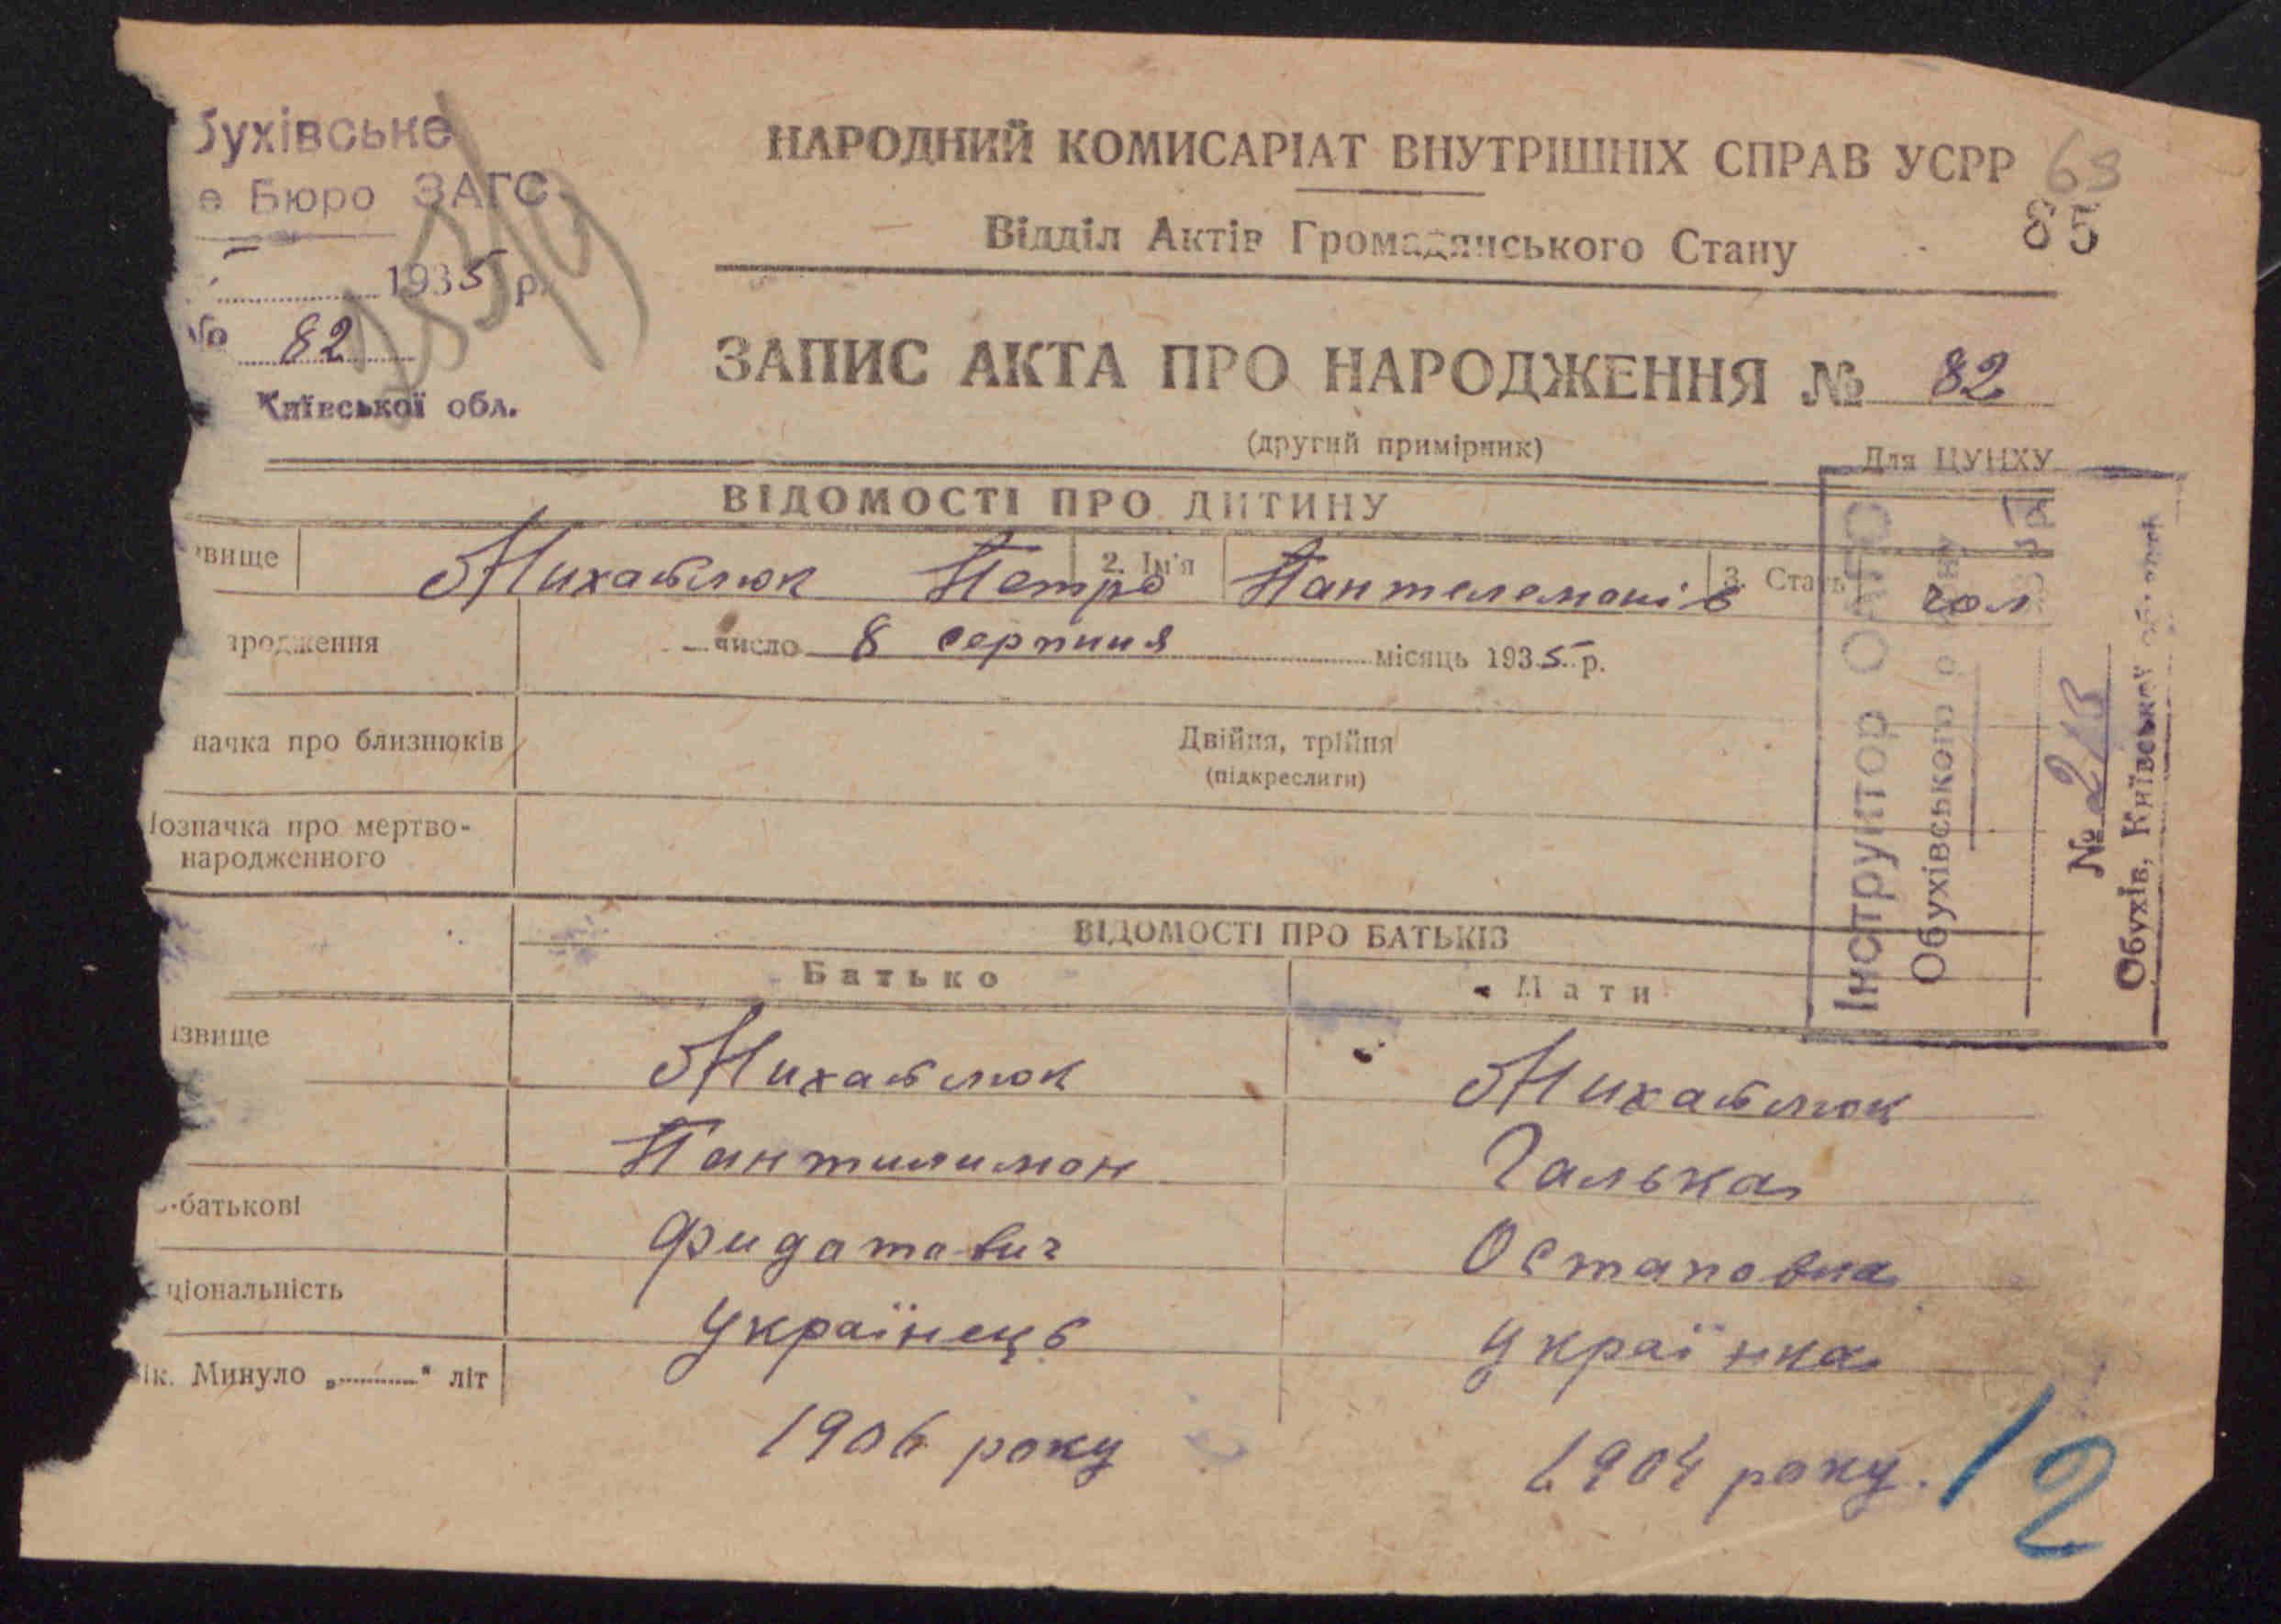 бухівське
е Бюро ЗАГС
1935 р.
№ 82
Київської обл.
НАРОДНИЙ КОМИСАРІАТ ВНУТРІШНІХ СПРАВ УСРР
68
85
Відділ Актів Громадянського Стану
ЗАПИС АКТА ПРО НАРОДЖЕННЯ № 82
(другий примірник)
Для ЦУНХУ
ВІДОМОСТІ ПРО ДИТИНУ
звище Михавлюк Петро 2. Ім'я Пантелемонів 3. Стать чол
ародження число 8 серпння місяць 1935 р.
начка про близнюків Двійня, трійня
(підкреслити)
Позначка про мертво-
народженного
Інструктор ОАГС
Обухівського
№ 2/13
Обухів, Київської
ВІДОМОСТІ ПРО БАТЬКІВ
Батько Мати
ізвище Михавлюк Михавлюк
Пантилимон Галька
о-батькові Фидатович Остаповна
ціональність Українець Українка
Вік. Минуло „ “ літ
1906 року 1904 року.
12